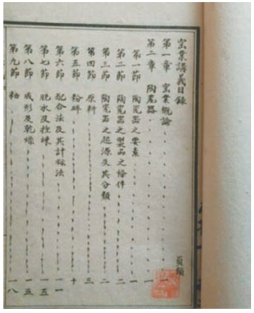 窑業講義目錄
頁頻
第一章 窑業概論 一
第二章 陶瓷器 一
第一節 陶瓷器之要素 一
第二節 陶瓷器之製品之條件 二
第三節 陶瓷器之起源及其分類 二
第四節 原料 三
第五節 粉碎 十
第六節 配合法及其計算法 一一
第七節 脱水及捏練 一四
第八節 成形及乾燥 一五
第九節 釉 一八